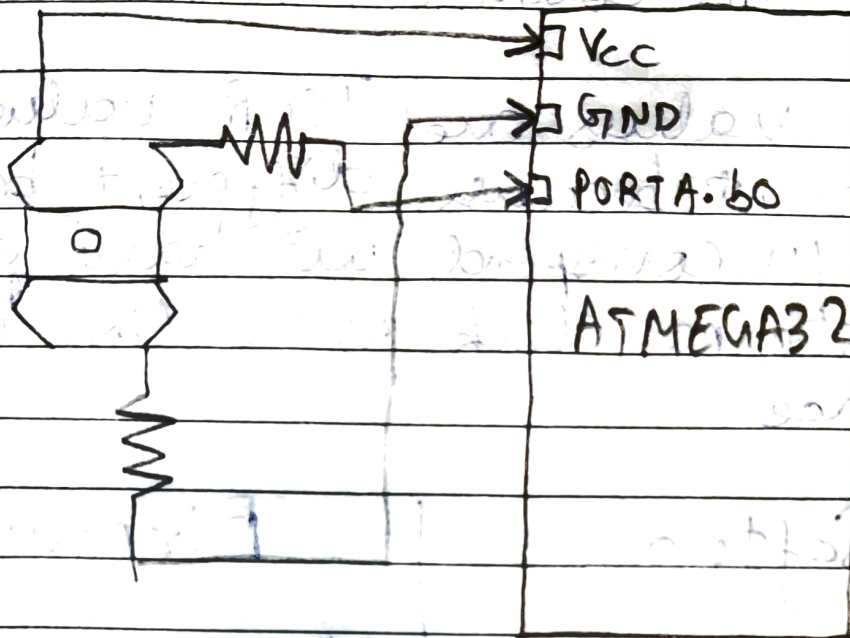 VCC
GND
PORTA.b0
ATMEGA32